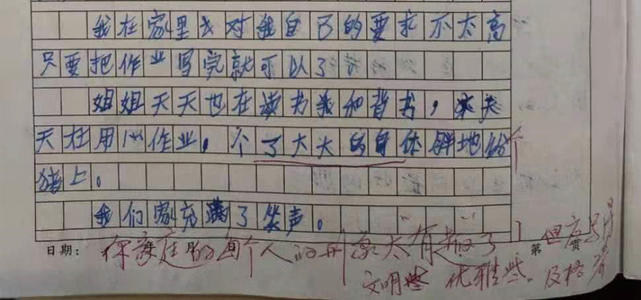 我在家里去对我自己的要求不太高
只要把作业写完就可以了
姐姐天天也在读书和背书，天
天在用心作业。个了大大的身体胖地
猪上。
我们家充满了笑声。
日期： 你家庭的每个人的形象太"有趣"了！但
第 页
文明些 优雅些。及格